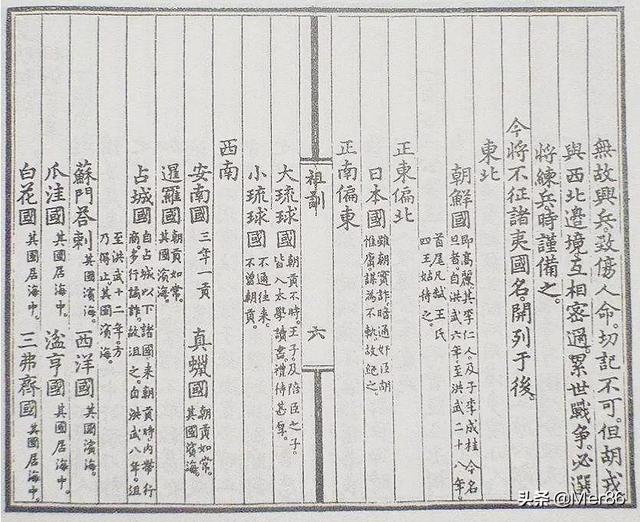 無故興兵致傷人命切記不可但胡戎
與西北邊境互相密邇累世戰爭必選
將練兵時謹備之
今將不征諸夷國名開列于後
東北
朝鮮國
即高麗其李仁人及子李成桂今名
旦者自洪武六年至洪武二十八年
首尾凡弑王氏
四王姑待之
正東偏北
日本國
雖朝實詐暗通奸臣胡
惟庸謀為不軌故絕之
正南偏東
大琉球國
朝貢不時王子及陪臣之子
皆入太學讀書禮待甚厚
小琉球國
不通往來
不曾朝貢
祖訓
六
西南
安南國
三年一貢
真蠟國
朝貢如常
其國濱海
暹羅國
朝貢如常
其國濱海
占城國
自占城以下諸國來朝貢時內帶行
商多行譎詐故沮之自洪武八年沮
至洪武十二年方
乃得止其國濱海
蘇門荅剌
其國濱海
西洋國
其國濱海
爪洼國
其國居海中
湓亨國
其國居海中
白花國
其國居海中
三弗齊國
其國居海中
头条 @Mer86